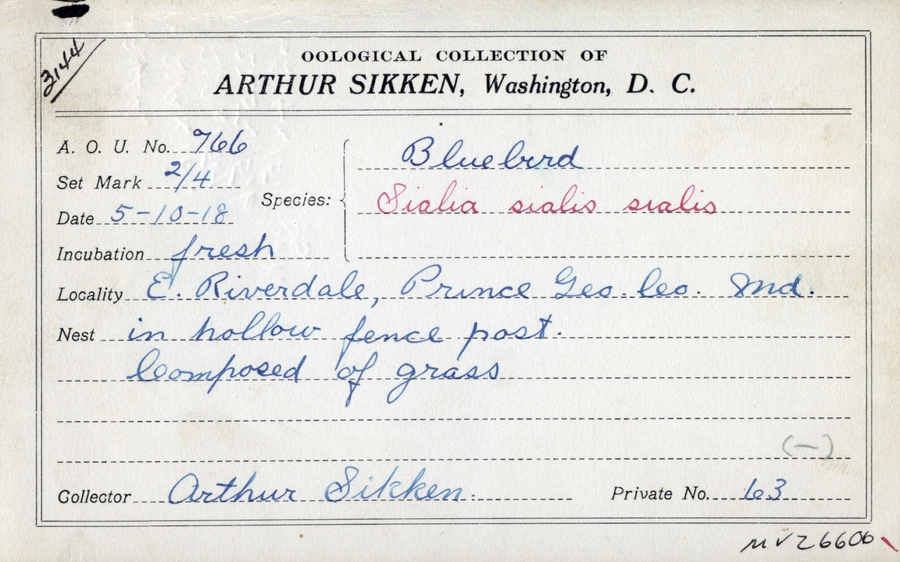 3144
OOLOGICAL COLLECTION OF
ARTHUR SIKKEN, Washington, D. C.
A. O. U. No. 766
Set Mark 2/4
Date 5-10-18
Incubation fresh
Species:
Bluebird
Sialia sialis sialis
Locality E. Riverdale, Prince Geo. Co. Md.
Nest in hollow fence post.
Composed of grass
(—)
Collector Arthur Sikken.
Private No. 63
MVZ 6606